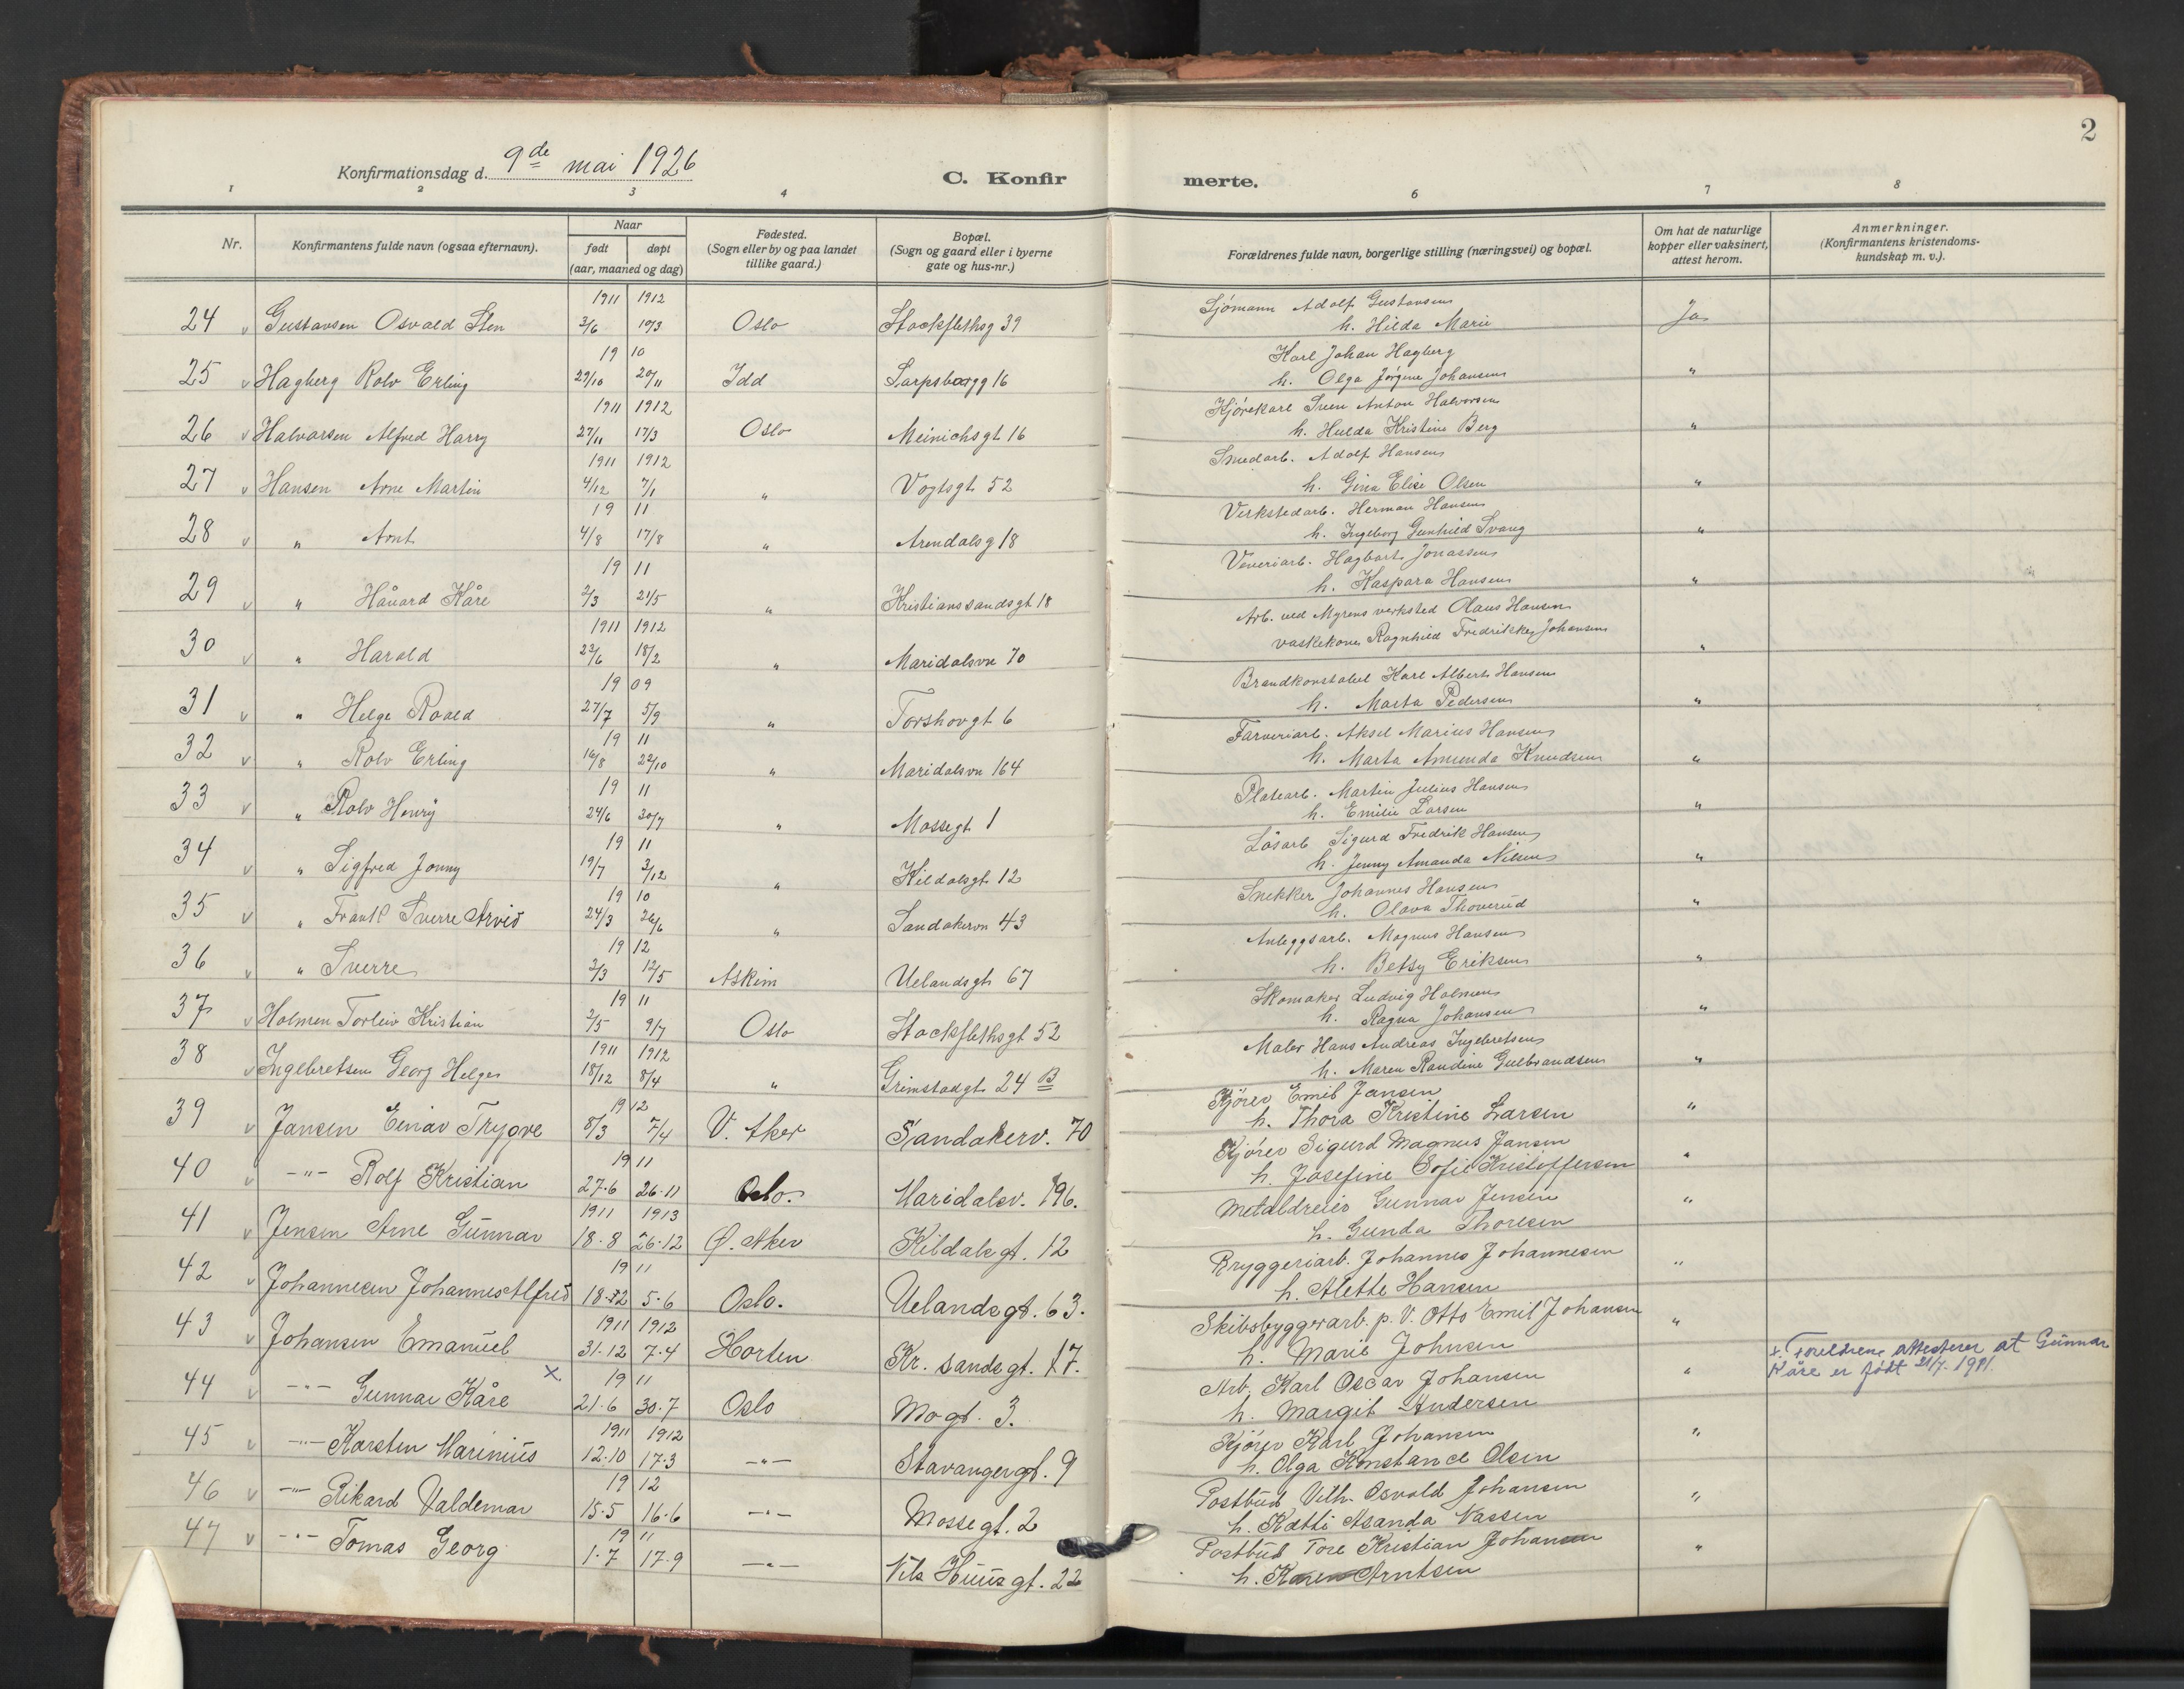 2
Konfirmationsdag d. 9de mai 1926
C. Konfirmerte.
1 2 3 4 6 7 8
Nr.
Konfirmantens fulde navn (ogsaa efternavn).
Naar
født døpt
(aar, maaned og dag)
Fødested.
(Sogn eller by og paa landet
tillike gaard.)
Bopæl.
(Sogn og gaard eller i byerne
gate og hus-nr.)
Forældrenes fulde navn, borgerlige stilling (næringsvei) og bopæl.
Om hat de naturlige
kopper eller vaksinert,
attest herom.
Anmerkninger.
(Konfirmantens kristendoms-
kundskap m. v.).
1911 1912 Sjömann Adolf Gustavsen
24 v Gustavsen Osvald Sten 3/6 10/3 Oslo Stockflethsg 39 h. Hilda Marie Ja
19 10 Karl Johan Hagberg
25 v Hagberg Rolv Erling 29/10 20/11 Idd Sarpsborgg 16 h. Olga Jörgine Johansen "
1911 1912 Kjörekarl Sven Anton Halvorsen
26 v Halvorsen Alfred Harry 27/11 17/3 Oslo Meinichsgt 16 h. Hulda Kristine Berg "
1911 1912 Smedarb. Adolf Hansen
27 v Hansen Arne Martin 4/12 7/1 " Vogtsgt 52 h. Gina Elise Olsen "
19 11 Verkstedarb. Herman Hansen
28 v " Arnt 4/8 17/8 " Arendalsg 18 h. Ingeborg Gunhild Svang "
19 11 Veveriarb. Hagbart Jonassen
29 v " Håvard Kåre 2/3 21/5 " Kristianssandsgt 18 h. Kaspara Hansen "
1911 1912 Arb. ved Myrens verksted Olaus Hansen
30 v " Harald 23/6 18/2 " Maridalsvn 70 vaskekone Ragnhild Fredrikke Johansen "
19 09 Brandkonstabel Karl Albert Hansen
31 v " Helge Roald 27/7 5/9 " Torshovgt 6 h. Marta Pedersen "
19 11 Farveriarb. Aksel Marius Hansen
32 v " Rolv Erling 16/8 22/10 " Maridalsvn 164 h. Marta Amunda Knudsen "
19 11 Platearb. Martin Julius Hansen
33 v " Rolv Henry 24/6 30/7 " Mossegt 1 h. Emilie Larsen "
19 11 Lösarb Sigurd Fredrik Hansen
34 v " Sigfred Jonny 19/7 3/12 " Kildalsgt 12 h. Jenny Amanda Nilsen "
19 10 Snekker Johannes Hansen
35 v " Frantl Sverre Arvid 24/3 26/6 " Sandakervn 43 h. Olava Thoverud "
19 12 Anleggsarb. Magnus Hansen
36 v " Sverre 2/3 12/5 Askim Uelandsgt 67 h. Betsy Eriksen "
19 11 Skomaker Ludvig Holmen
37 v Holmen Torleiv Kristian 2/5 9/7 Oslo Stockflethsgt 52 h. Ragna Johansen "
1911 1912 Maler Hans Andreas Ingebretsen
38 v Ingebretsen Georg Helge 18/12 8/4 " Grimstadgt 24 B h. Maren Randine Gulbrandsen "
19 12 Kjörer Emil Jansen
39 v Jansen Einar Trygve 8/3 7/4 V. Aker Sandakerv. 70 h. Thora Kristine Larsen "
19 11 Kjörer Sigurd Magnus Jansen
40 v -"- Rolf Kristian 27.6 26.11 Oslo. Maridalsv. 196. h. Josefine Sofie Kristoffersen "
1911 1913 Metaldreier Gunnar Jensen
41 v Jensen Arne Gunnar 18.8 26.12 Ø. Aker Kildalsgt. 12 h. Gunda Thoresen "
19 11 Bryggeriarb. Johannes Johannesen
42 v Johannesen Johannes Alfred 18.2 5.6 Oslo. Uelandsgt. 63. h. Alette Hansen "
1911 1912 Skibsbyggerarb. p. V. Otto Emil Johansen
43 v Johansen Emanuel 31.12 7.4 Horten Kr. sandsgt. 17. h. Marie Johnsen "
x 19 11 Arb. Karl Oscar Johansen
44 v -"- Gunnar Kåre 21.6 30.7 Oslo Mogt. 3. h. Margit Andersen " x. Foreldrene attesterer at Gunnar
Kåre er födt 21/7. 1911.
1911 1912 Kjörer Karl Johansen
45 v -"- Karsten Marinius 12.10 17.3 -"- Stavangergt. 9 h. Olga Konstanse Olsen "
19 12 Postbud Vilh. Osvald Johansen
46 v -"- Rikard Valdemar 15.5 16.6 -"- Mossegt. 2 h. Kathi Asanda Nassen "
19 11 Postbud Tore Kristian Johansen
47 v -"- Tomas Georg 1.7 17.9 -"- Nils Huusgt. 22 h. Karen Arntsen "